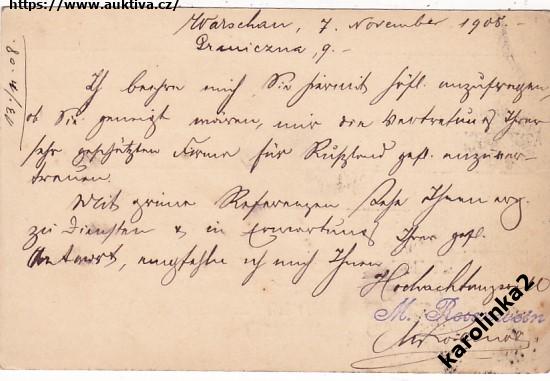 https://www.auktiva.cz/
Warschau, 7. November 1908.-
Graniczna, 9.-
Ich beehre mich Sie hiermit höfl. anzufragen,
ob Sie geneigt wären, mir die Vertretung Ihrer
sehr geschätzten Firma für Rußland gefl. anzuver-
trauen.
Mit prima Referenzen stehe Ihnen erg.
zu Diensten & in Erwartung Ihrer gefl.
Antwort, empfehle ich mich Ihnen
Hochachtungsvoll
M.
karolinka2